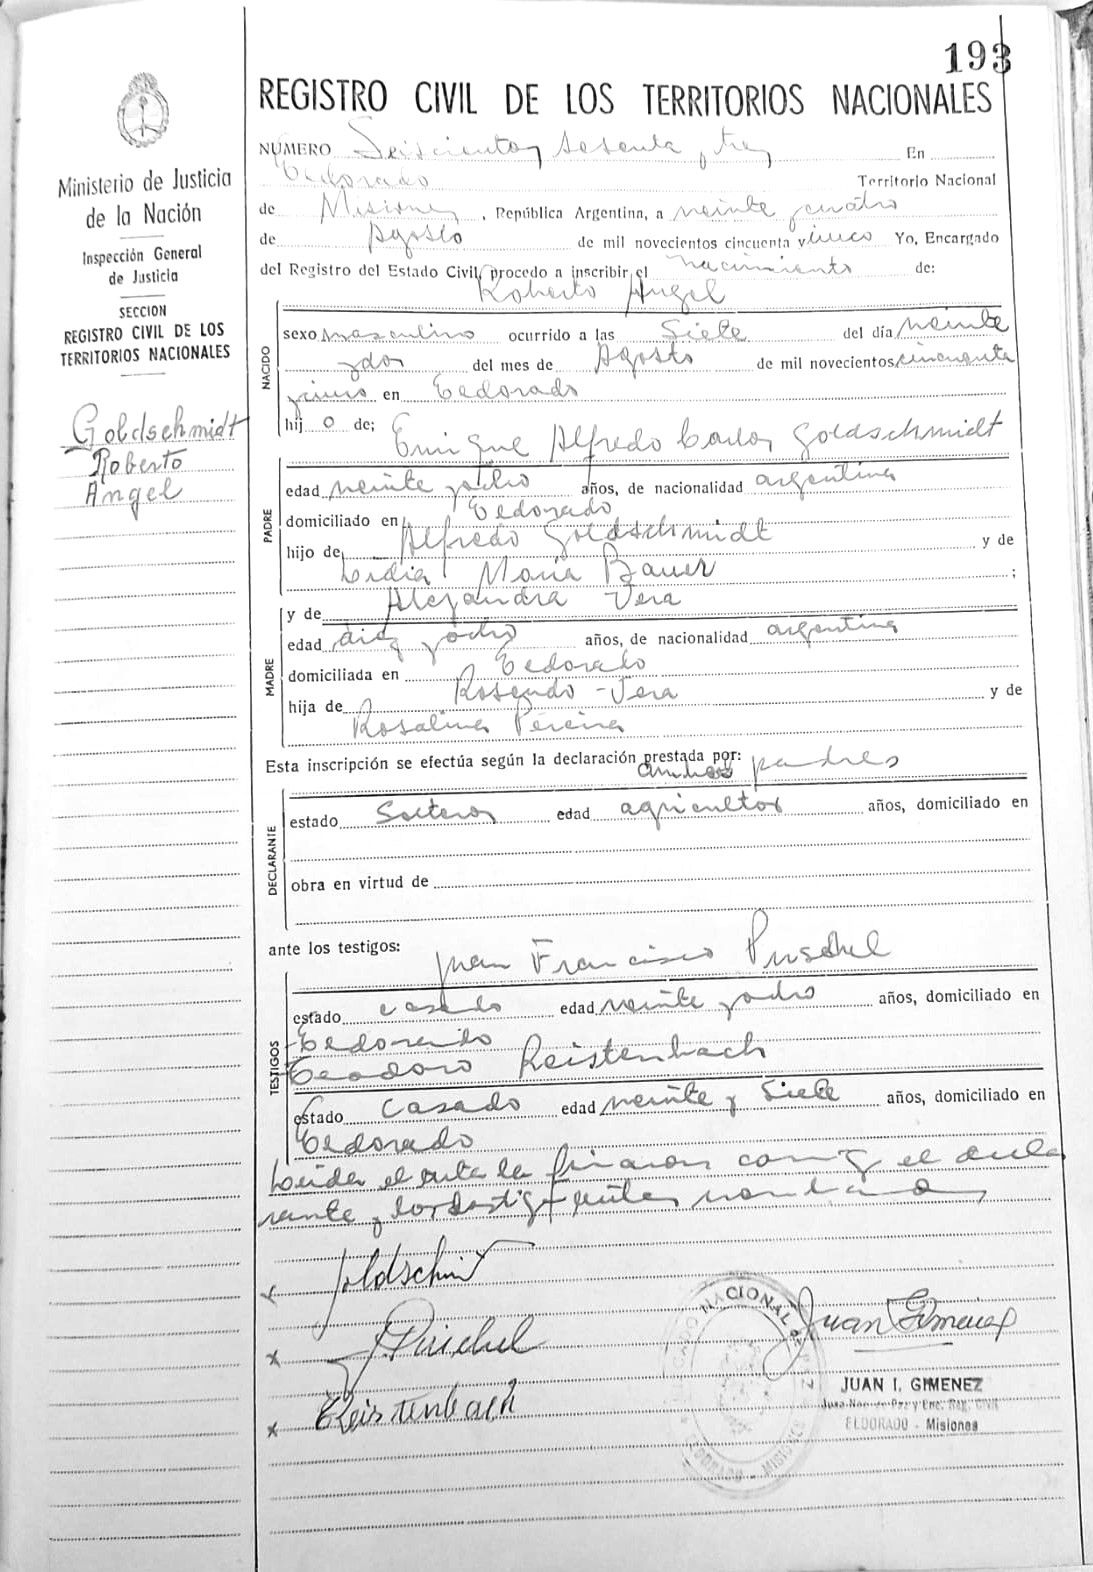 193
REGISTRO CIVIL DE LOS TERRITORIOS NACIONALES
Ministerio de Justicia
de la Nación
Inspección General
de Justicia
SECCION
REGISTRO CIVIL DE LOS
TERRITORIOS NACIONALES
Goldschmidt
Roberto
Angel
NUMERO Seiscientos sesenta y tres En
Eldorado Territorio Nacional
de Misiones, República Argentina, a veinte y cuatro
de Agosto de mil novecientos cincuenta y cinco Yo, Encargado
del Registro del Estado Civil, procedo a inscribir el nacimiento de:
Roberto Angel
NACIDO
sexo masculino ocurrido a las Siete del día veinte
y dos del mes de Agosto de mil novecientos cincuenta
y cinco en Eldorado
hij o de; Enrique Alfredo Carlos Goldschmidt
PADRE
edad veinte y ocho años, de nacionalidad argentina
domiciliado en Eldorado
hijo de Alfredo Goldschmidt y de
Lidia María Bauer ;
y de Alejandra Vera
MADRE
edad diez y ocho años, de nacionalidad argentina
domiciliada en Eldorado
hija de Rosendo - Vera y de
Rosalina Pereira
Esta inscripción se efectúa según la declaración prestada por:
ambos padres
DECLARANTE
estado Solteros edad agricultor años, domiciliado en
obra en virtud de
ante los testigos: Juan Francisco Puschel
TESTIGOS
estado casado edad veinte y ocho años, domiciliado en
Eldorado
Teodoro Reistenbach
estado Casado edad veinte y Siete años, domiciliado en
Eldorado
Leida el acta la firman conmigo el decla
rante y los testigos
Goldschmidt
Puschel
Reistenbach
Juan Gimenez
JUAN I. GIMENEZ
Juez Nac. de Paz y Enc. Reg. Civil
ELDORADO - Misiones
NACIONAL DE PAZ
ELDORADO - MISIONES